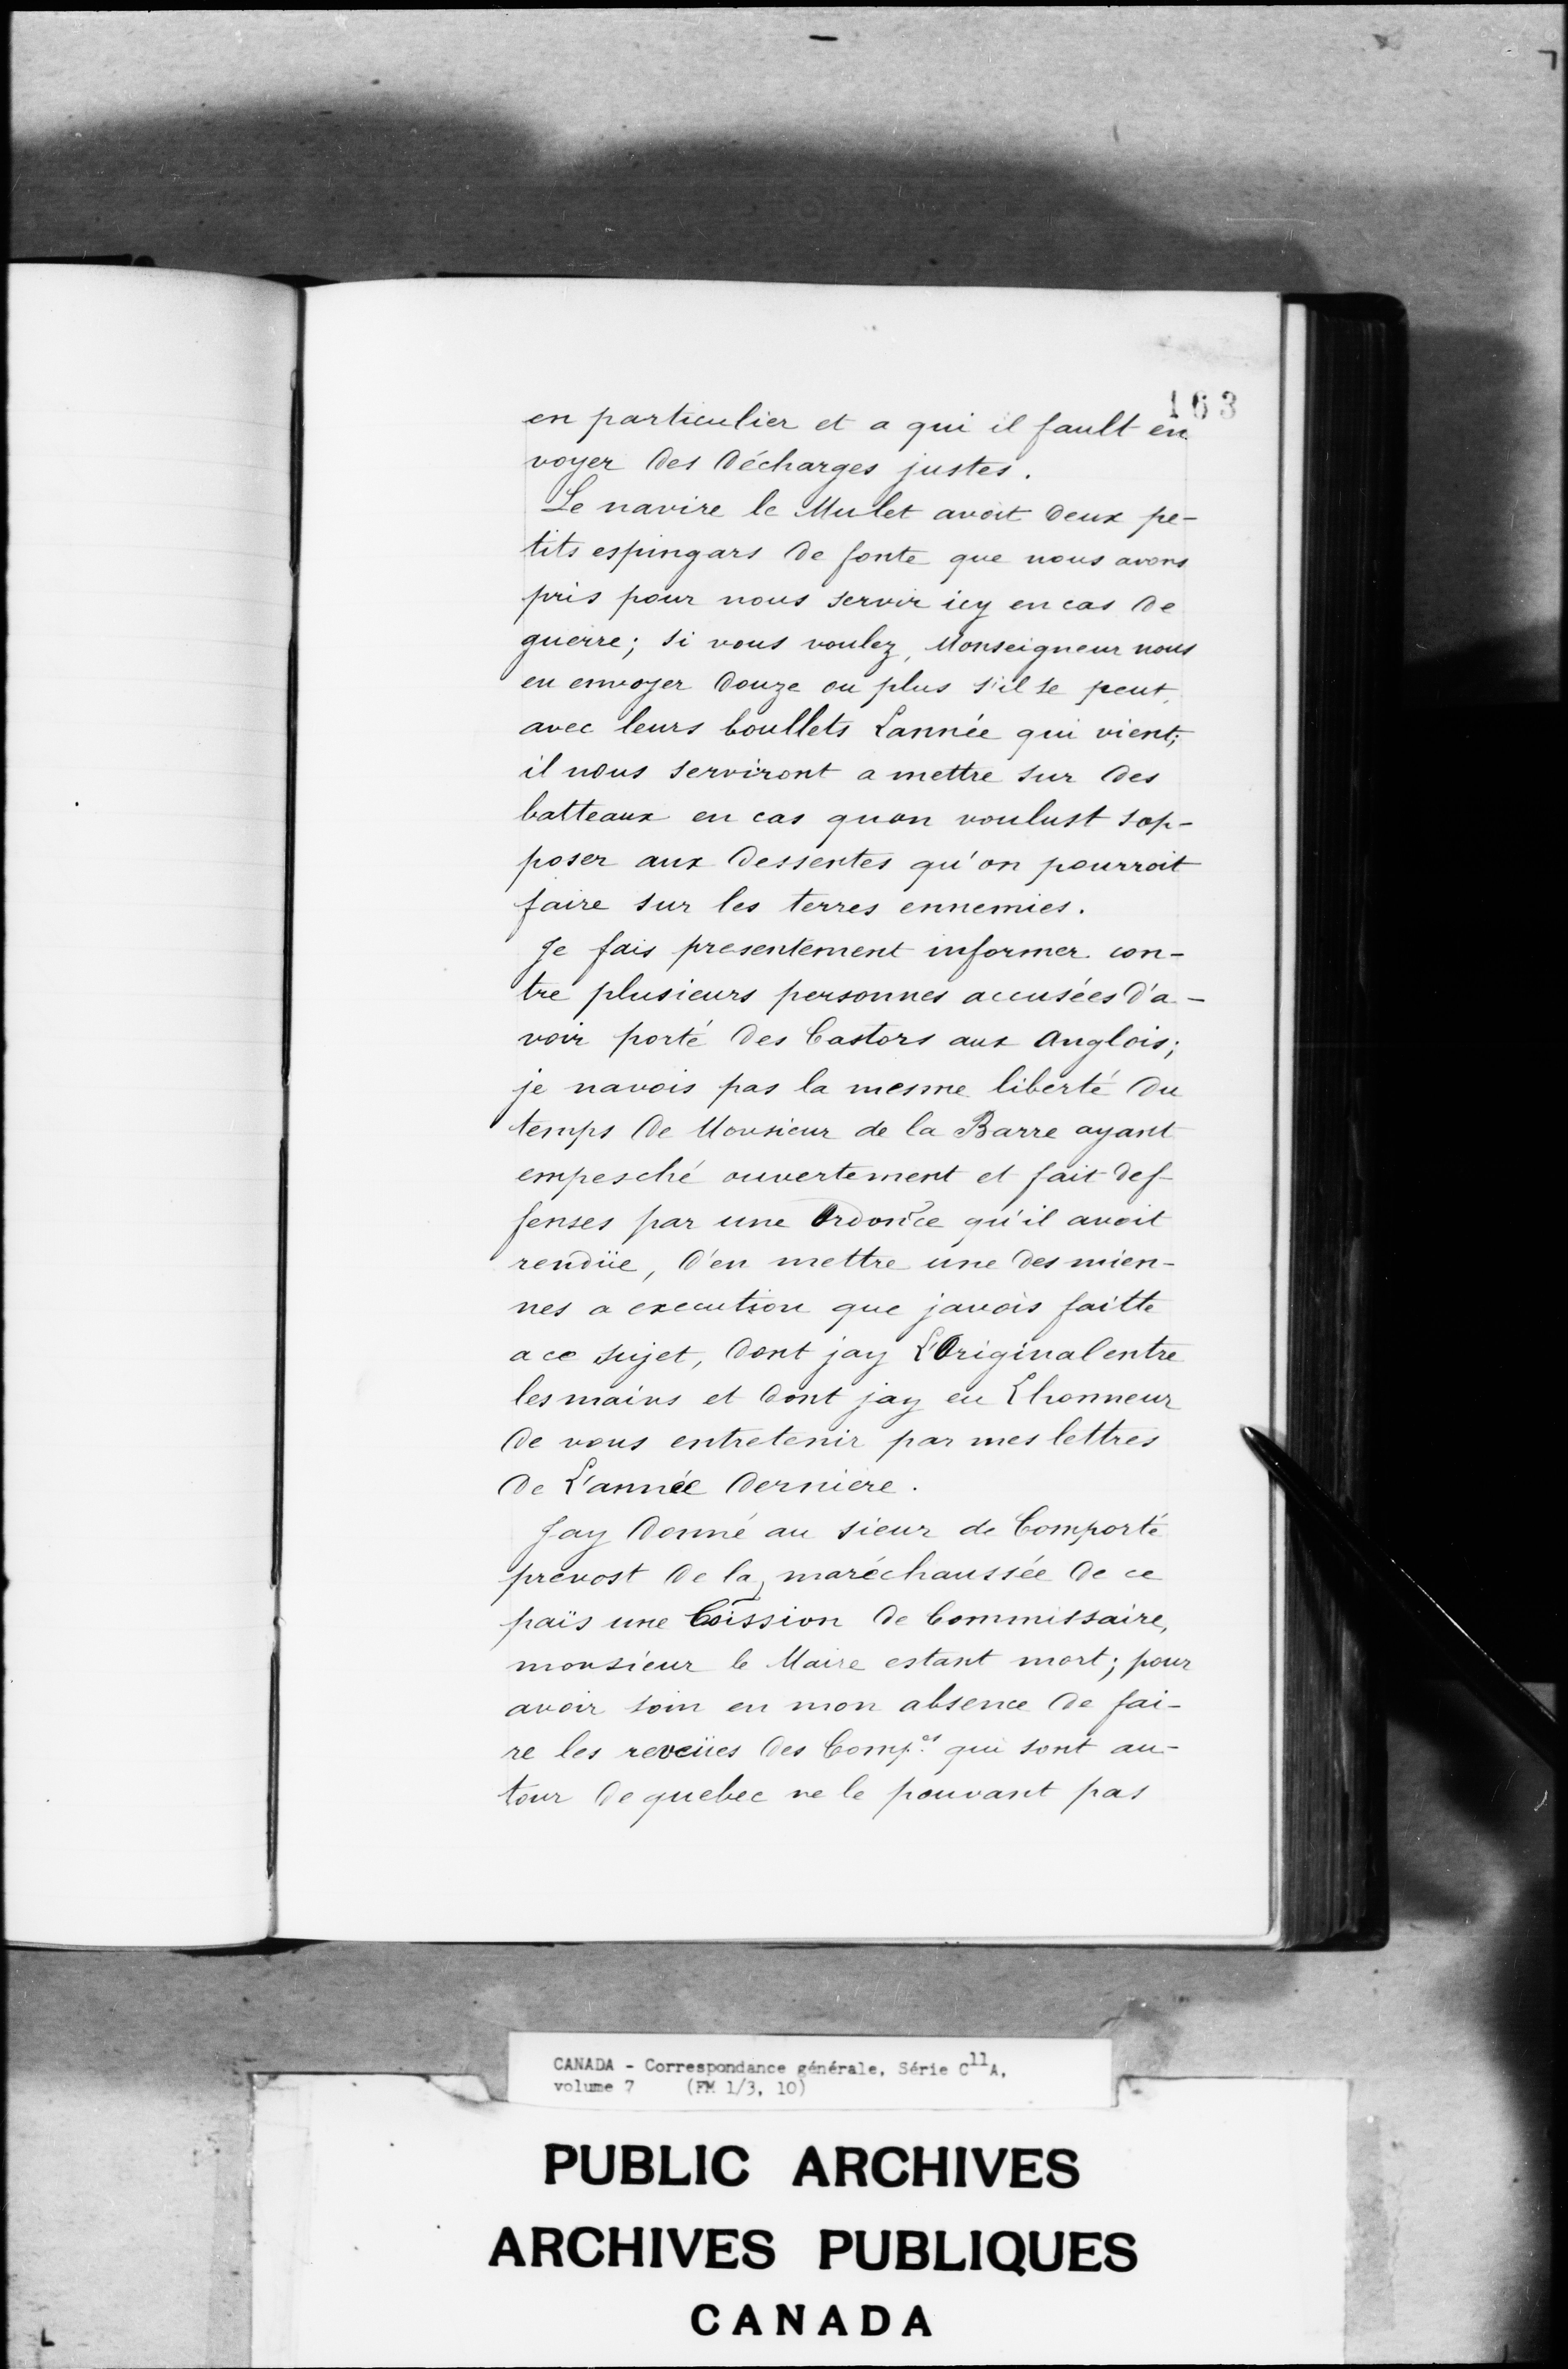 163
en particulier et a qui il fault en
voyer des décharges justes.
Le navire le Mulet avoit deux pe-
tits espingars de fonte que nous avons
pris pour nous servir icy en cas de
guerre; si vous voulez, Monseigneur nous
en envoyer douze ou plus s'il se peut,
avec leurs boullets Lannée qui vient;
il nous serviront a mettre sur des
batteaux en cas quon voulust sop-
poser aux dessentes qu'on pourroit
faire sur les terres ennemies.
Je fais presentement informer con-
tre plusieurs personnes accusées d'a-
voir porté des Castors aux anglois;
je navois pas la mesme liberté du
temps de Monsieur de la Barre ayant
empesché ouvertement et fait def-
fenses par une Ordon̄ce qu'il avoit
rendüe, d'en mettre une des mien-
nes a execution que javois faitte
a ce sujet, dont jay L'Original entre
les mains et dont jay eu Lhonneur
de vous entretenir par mes lettres
de L'année derniere.
Jay donné au sieur de Comporté
prevost de la maréchaussée de ce
païs une Coission de Commissaire,
monsieur le Maire estant mort; pour
avoir soin en mon absence de fai-
re les reveües des Comp.es qui sont au-
tour de quebec ne le pouvant pas
CANADA - Correspondance générale, Série C11A,
volume 7 (FM 1/3, 10)
PUBLIC ARCHIVES
ARCHIVES PUBLIQUES
CANADA